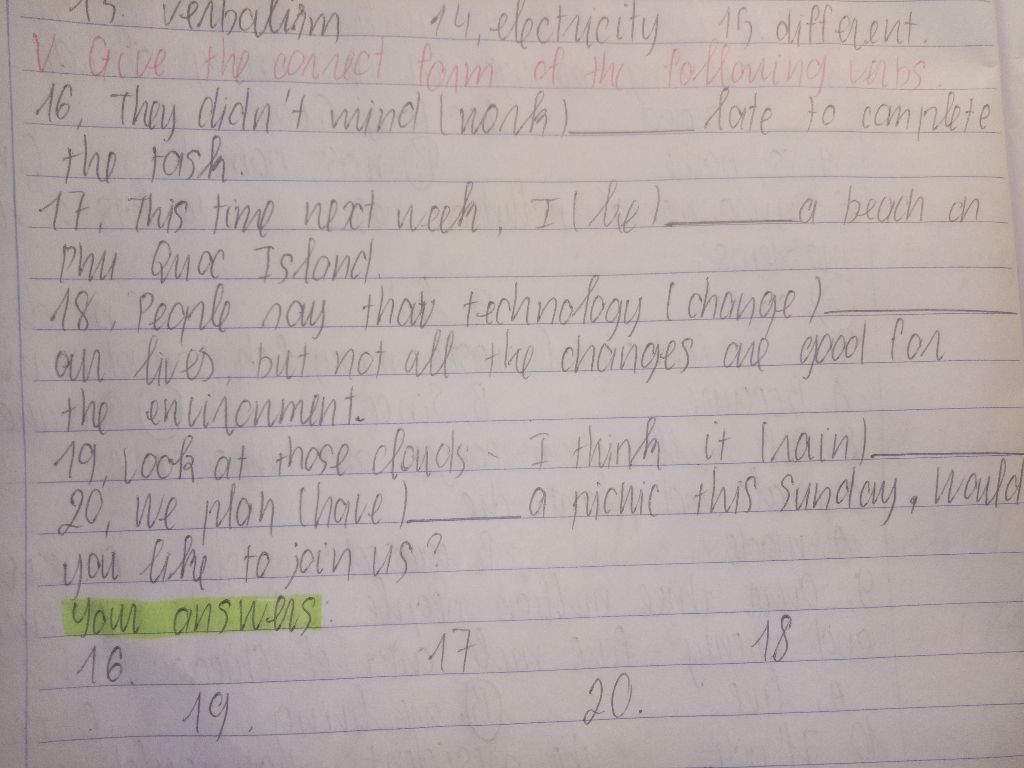 13. verbalism 14, electricity 15 different.
V. Give the correct form of the following verbs.
16, They didn't mind (work) ______ late to complete
the task.
17, This time next week, I (be) ______ a beach on
Phu Quoc Island.
18, People say that technology (change) ______
our lives, but not all the changes are good for
the environment.
19, Look at those clouds - I think it (rain) ______
20, We plan (have) ______ a picnic this Sunday, Would
you like to join us?
your answers:
16. 17 18
19. 20.